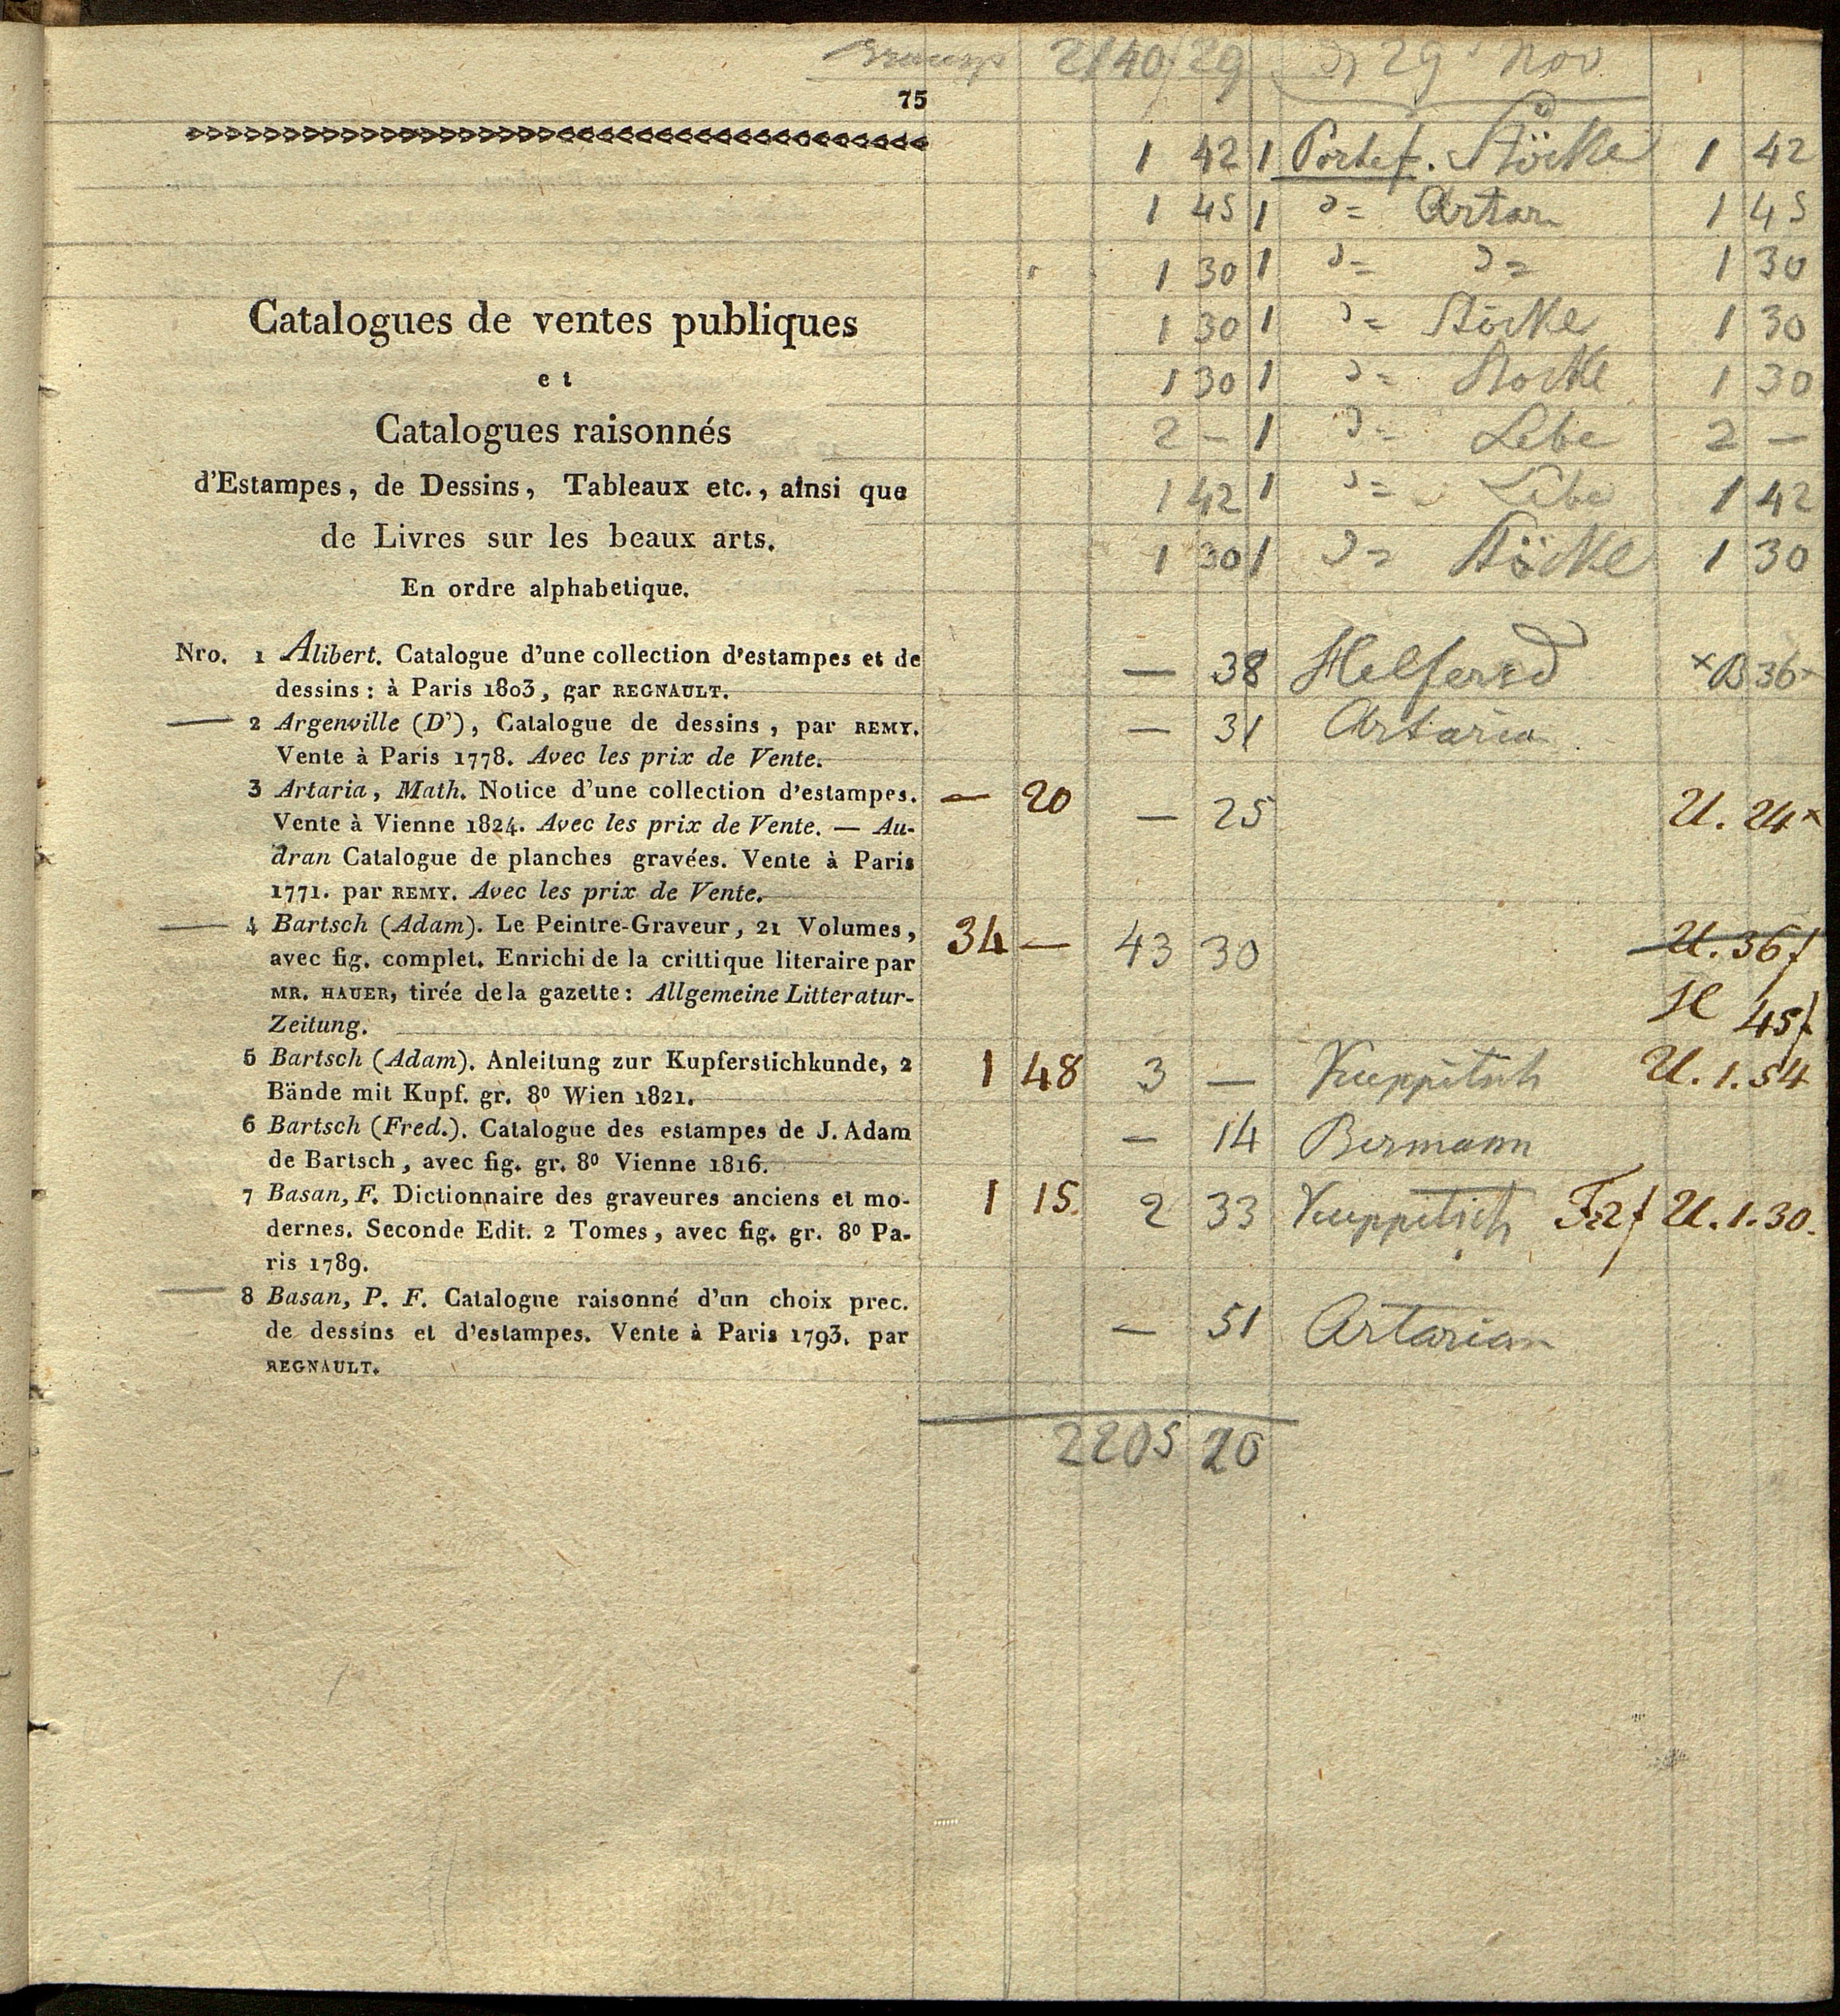 2140 29 29 Nov
75
1 42 1 Portef. Stöckl 1 42
1 45 1 Artar 1 45
1 30 1 1 30
1 30 1 Stöckl 1 30
1 30 1 Stöckl 1 30
2 — 1 2 —
1 42 1 1 42
1 30 1 Stöckl 1 30
Catalogues de ventes publiques
et
Catalogues raisonnés
d'Estampes, de Dessins, Tableaux etc., ainsi que
de Livres sur les beaux arts.
En ordre alphabetique.
Nro. 1 Alibert. Catalogue d'une collection d'estampes et de — 38 B 36
dessins : à Paris 1803, gar REGNAULT.
— 2 Argenville (D'), Catalogue de dessins, par REMY. — 31 Artaria
Vente à Paris 1778. Avec les prix de Vente.
3 Artaria, Math. Notice d'une collection d'estampes. — 20 — 25 U. 24 x
Vente à Vienne 1824. Avec les prix de Vente. — Au-
dran Catalogue de planches gravées. Vente à Paris
1771. par REMY. Avec les prix de Vente.
— 4 Bartsch (Adam). Le Peintre-Graveur, 21 Volumes, 34 — 43 30 U. 36 f
avec fig. complet. Enrichi de la crittique literaire par
MR. HAUER, tirée de la gazette : Allgemeine Litteratur- 45 f
Zeitung.
5 Bartsch (Adam). Anleitung zur Kupferstichkunde, 2 1 48 3 — Kuppitsch U. 1. 54
Bände mit Kupf. gr. 8º Wien 1821.
6 Bartsch (Fred.). Catalogue des estampes de J. Adam — 14 Bermann
de Bartsch, avec fig. gr. 8º Vienne 1816.
7 Basan, F. Dictionnaire des graveures anciens et mo- 1 15. 2 33 Kuppitsch U. 1. 30.
dernes. Seconde Edit. 2 Tomes, avec fig. gr. 8º Pa-
ris 1789.
— 8 Basan, P. F. Catalogue raisonné d'un choix prec. — 51 Artaria
de dessins et d'estampes. Vente à Paris 1793. par
REGNAULT.
2205 20